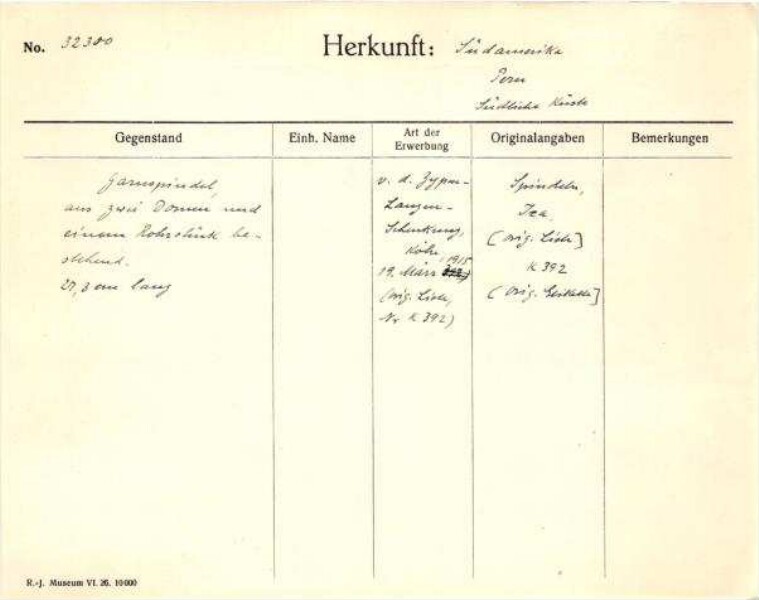 No. 32300
Herkunft: Südamerika
Peru
Südliche Küste
Gegenstand
Einh. Name
Art der Erwerbung
Originalangaben
Bemerkungen
Garnspindel,
aus zwei Dornen und
einem Rohrstück be-
stehend.
27,3 cm lang
v. d. Zypen-
Langen-
Schenkung,
Köln,
19. März 1915
(orig. Liste,
Nr K 392)
Spindeln,
Ica.
(orig. Liste]
K 392
(orig. Etikette]
R.-J. Museum VI. 26. 10000